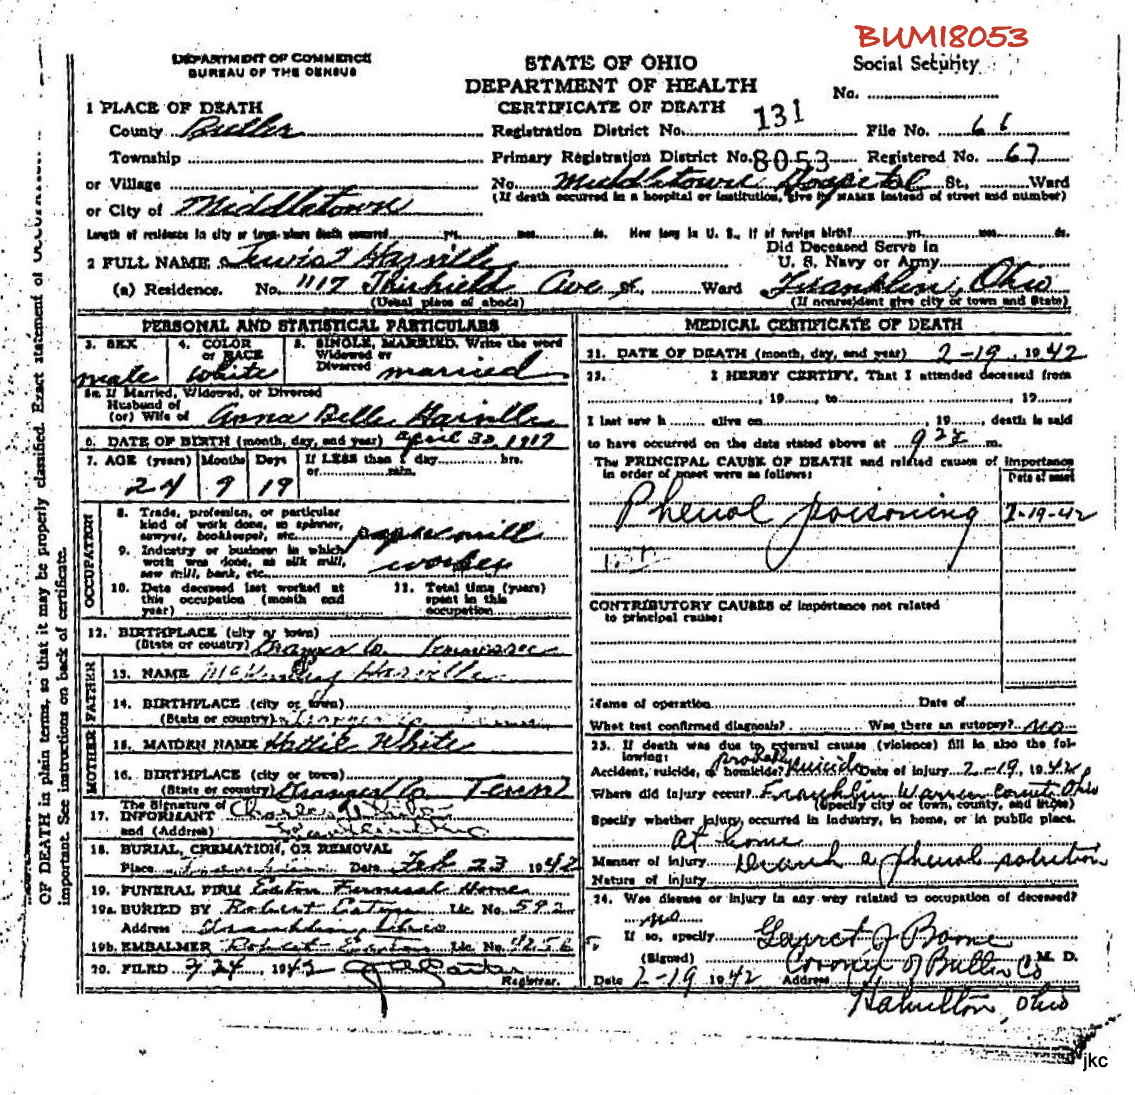 BUM18053
DEPARTMENT OF COMMERCE
BUREAU OF THE CENSUS
STATE OF OHIO
DEPARTMENT OF HEALTH
CERTIFICATE OF DEATH
Social Security
No.
1 PLACE OF DEATH
County Butler
Registration District No. 131 File No. 66
Township
Primary Registration District No. 8053 Registered No. 67
or Village
No. Middletown Hospital St., Ward
or City of Middletown
(If death occurred in a hospital or institution, give its NAME instead of street and number)
Length of residence in city or town where death occurred yrs. mos. ds. How long in U. S., if of foreign birth? yrs. mos. ds.
Did Deceased Serve in
U. S. Navy or Army
2 FULL NAME Lewis Harville
(a) Residence. No. 1117 Ave St., Ward Franklin, Ohio
(Usual place of abode) (If nonresident give city or town and State)
PERSONAL AND STATISTICAL PARTICULARS
3. SEX 4. COLOR or RACE 5. SINGLE, MARRIED. Write the word
Widowed or
Divorced
male white married
5a. If Married, Widowed, or Divorced
Husband of
(or) Wife of Anna Belle Harville
6. DATE OF BIRTH (month, day, and year) April 30, 1917
7. AGE (years) Months Days If LESS than 1 day hrs.
or min.
24 9 19
OCCUPATION
8. Trade, profession, or particular
kind of work done, as spinner,
sawyer, bookkeeper, etc. paper mill
9. Industry or business in which
work was done, as silk mill,
saw mill, bank, etc. worker
10. Date deceased last worked at
this occupation (month and
year)
11. Total time (years)
spent in this
occupation
12. BIRTHPLACE (city or town)
(State or country) Grainger Co. Tennessee
FATHER
13. NAME McKinley Harville
14. BIRTHPLACE (city or town)
(State or country)
MOTHER
15. MAIDEN NAME Hattie White
16. BIRTHPLACE (city or town)
(State or country) Grainger Co Tenn
The Signature of
17. INFORMANT Charles
and (Address)
18. BURIAL, CREMATION, OR REMOVAL
Place Date Feb 23 1942
19. FUNERAL FIRM Eaton Funeral Home
19a. BURIED BY Robert Eaton Lic. No. 592
Address
19b. EMBALMER Robert Eaton Lic. No. 4256
20. FILED 2/24, 1942
Registrar.
MEDICAL CERTIFICATE OF DEATH
21. DATE OF DEATH (month, day, and year) 2-19, 1942
22. I HERBY CERTIFY, That I attended deceased from
, 19, to , 19,
I last saw h alive on , 19, death is said
to have occurred on the date stated above at m.
The PRINCIPAL CAUSE OF DEATH and related causes of importance
in order of onset were as follows:
Date of onset
Phenol poisoning 2-19-42
CONTRIBUTORY CAUSES of importance not related
to principal cause:
Name of operation Date of
What test confirmed diagnosis? Was there an autopsy? no
23. If death was due to external causes (violence) fill in also the fol-
lowing: probably
Accident, suicide, or homicide? suicide Date of injury 2-19, 1942
Where did injury occur? Franklin Warren County Ohio
(Specify city or town, county, and State)
Specify whether injury occurred in industry, in home, or in public place.
At home
Manner of injury Drank a phenol solution
Nature of injury
24. Was disease or injury in any way related to occupation of deceased?
no
If so, specify
(Signed) Garret J Boone M. D.
Coroner of Butler Co
Date 2-19 1942 Address
Hamilton, Ohio
OF DEATH in plain terms, so that it may be properly classified. Exact statement of OCCUPATION
important. See instructions on back of certificate.
jkc